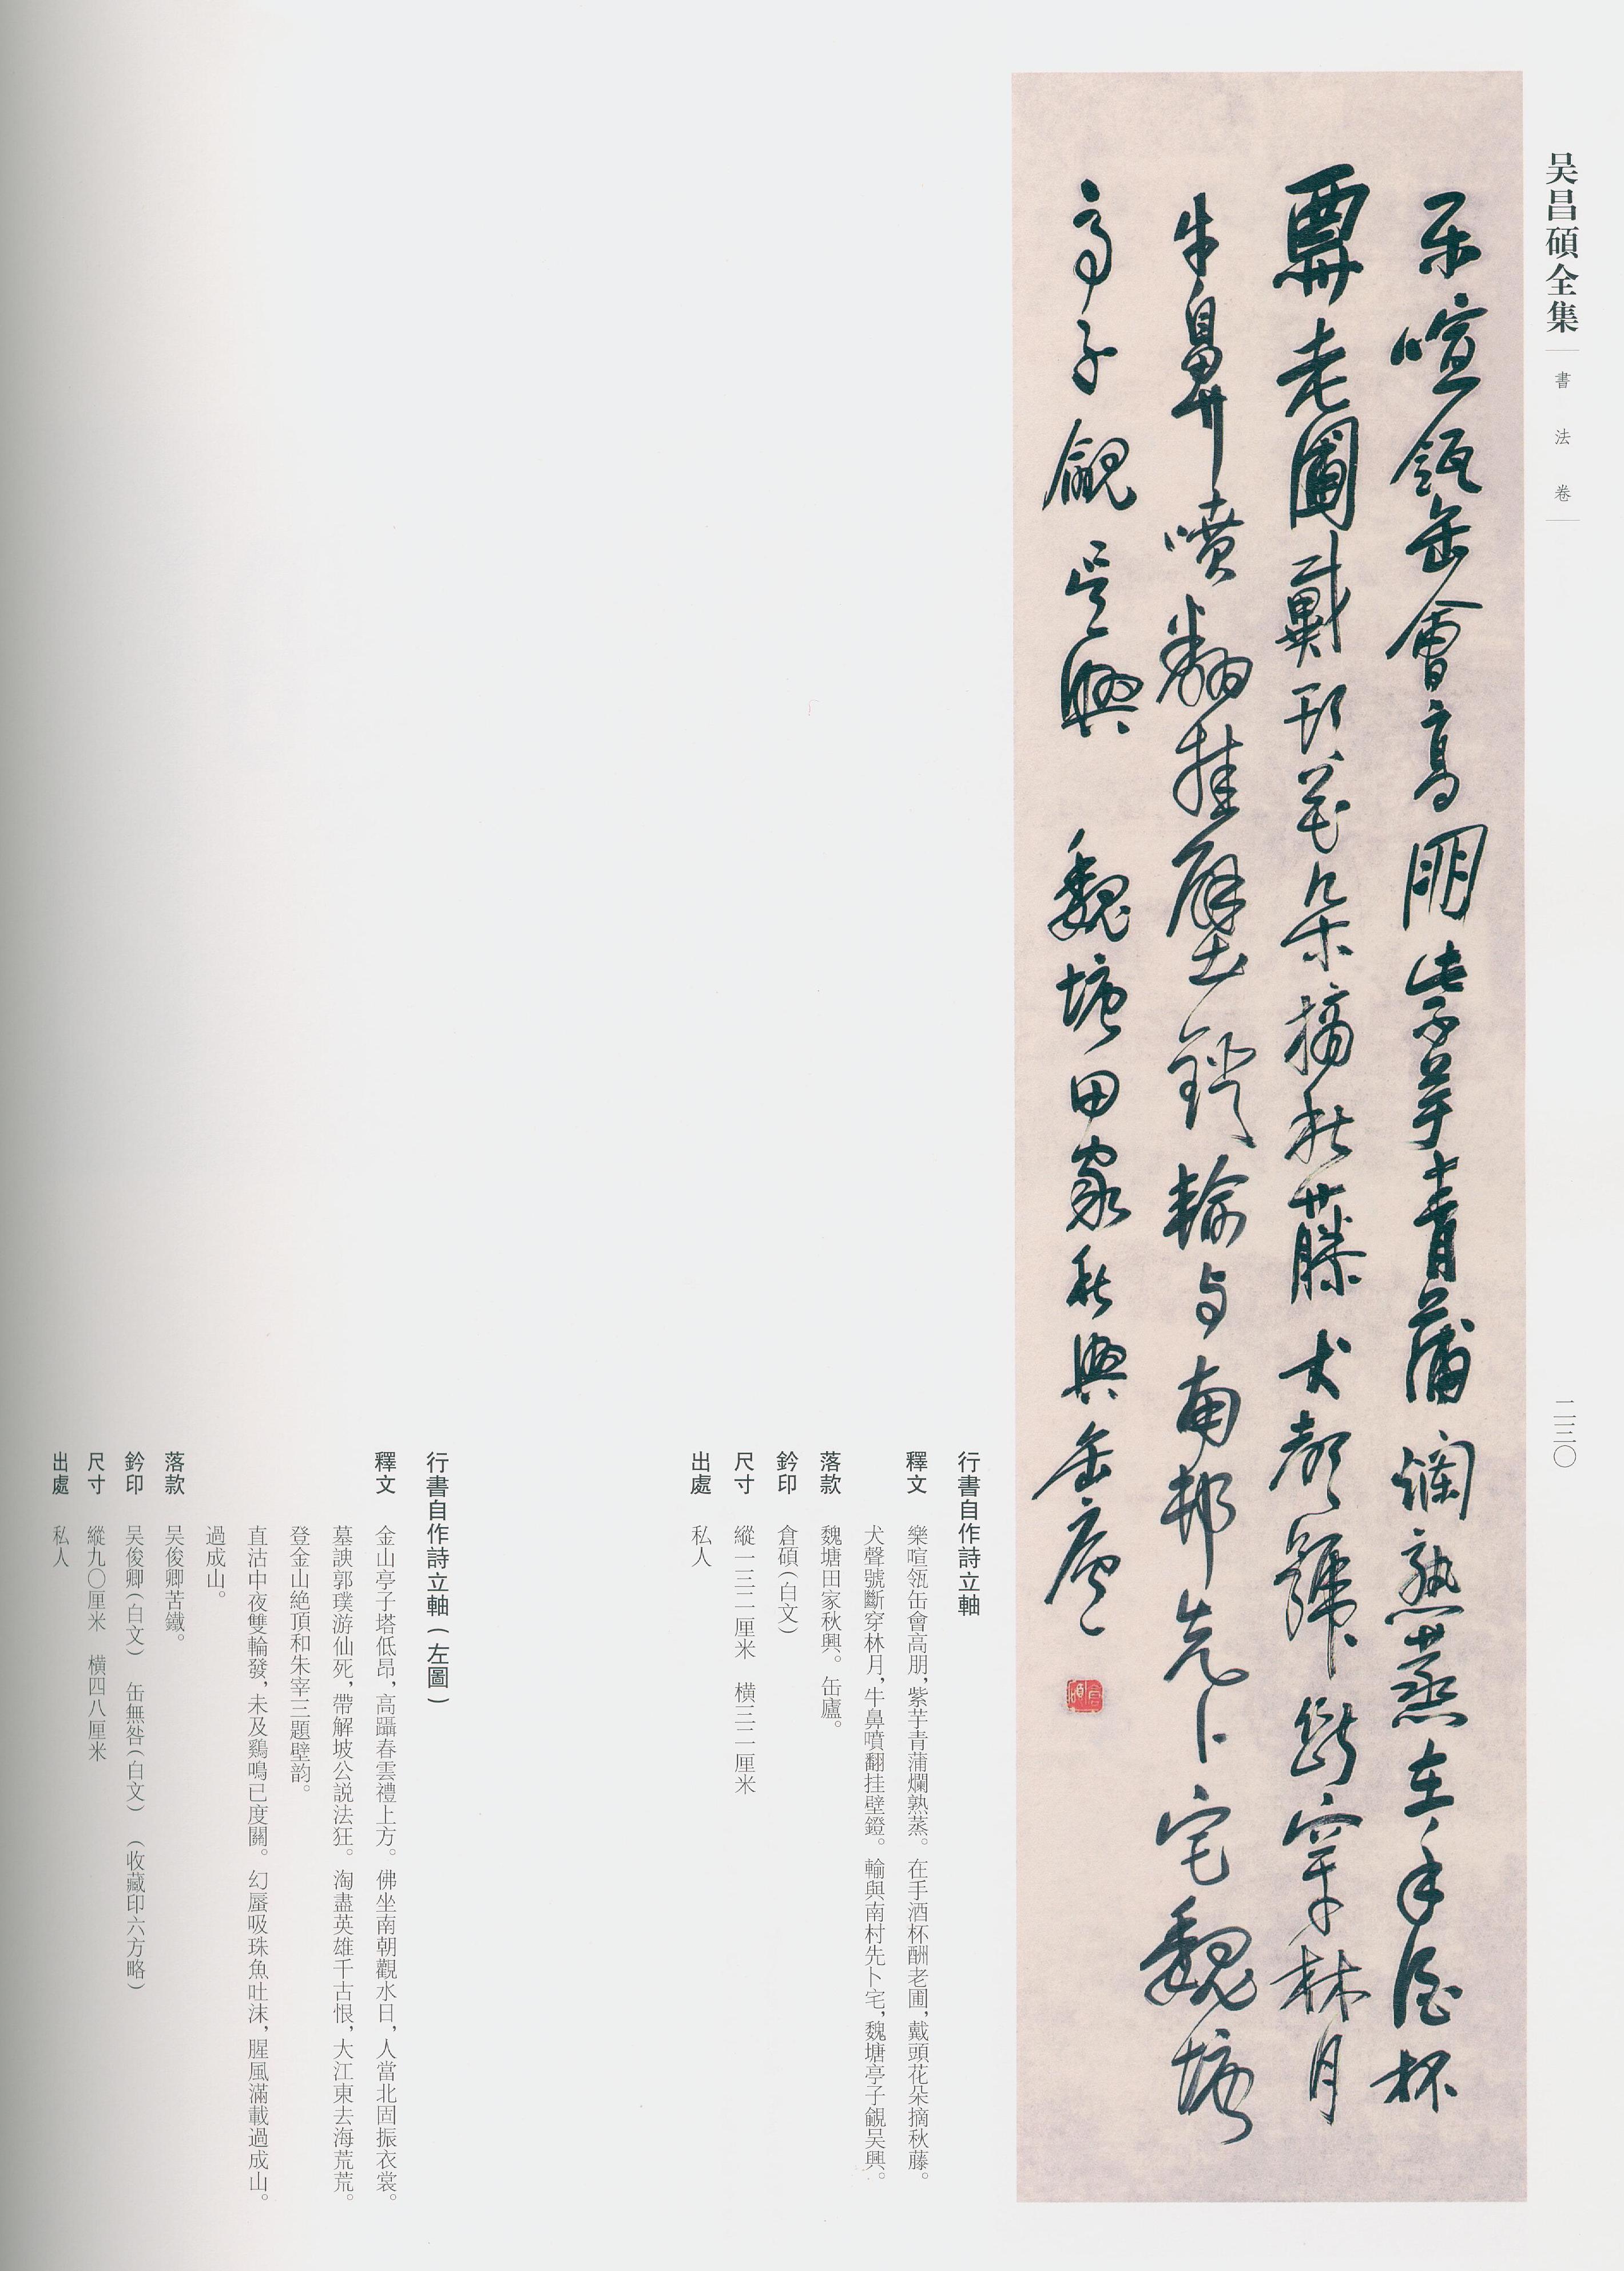 吴昌碩全集
書法卷
二三〇
乐喧瓴缶會高朋紫芋青蒲爛熟蒸在手酒杯
老圃戴頭花朵摘秋藤犬聲號斷穿林月
牛鼻噴翻挂壁鐙輸与南邨先卜宅魏塘
亭子覦吴興 魏塘田家秋興缶廬
倉碩
行書自作詩立軸
釋文 樂喧瓴缶會高朋,紫芋青蒲爛熟蒸。在手酒杯酬老圃,戴頭花朵摘秋藤。
犬聲號斷穿林月,牛鼻噴翻挂壁鐙。輸與南村先卜宅,魏塘亭子覦吴興。
落款 魏塘田家秋興。缶廬。
鈐印 倉碩(白文)
尺寸 縱一三二厘米 横三二厘米
出處 私人
行書自作詩立軸(左圖)
釋文 金山亭子塔低昂,高躡春雲禮上方。佛坐南朝觀水日,人當北固振衣裳。
墓諛郭璞游仙死,帶解坡公説法狂。淘盡英雄千古恨,大江東去海荒荒。
登金山絶頂和朱宰三題壁韵。
直沽中夜雙輪發,未及鷄鳴已度關。幻蜃吸珠魚吐沫,腥風滿載過成山。
過成山。
落款 吴俊卿苦鐵。
鈐印 吴俊卿(白文) 缶無咎(白文) (收藏印六方略)
尺寸 縱九〇厘米 横四八厘米
出處 私人